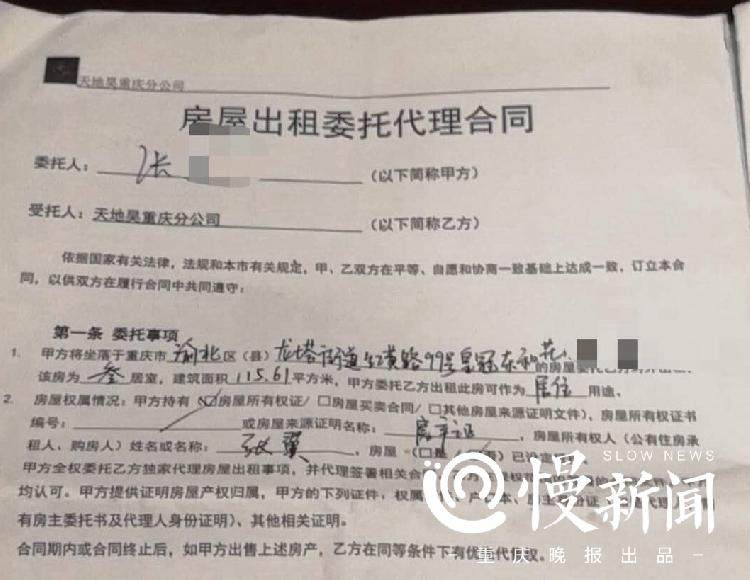 天地昊重庆分公司
房屋出租委托代理合同
委托人：张 （以下简称甲方）
受托人：天地昊重庆分公司 （以下简称乙方）
依据国家有关法律，法规和本市有关规定，甲、乙双方在平等、自愿和协商一致基础上达成一致，订立本合
同，以供双方在履行合同中共同遵守：
第一条 委托事项
1. 甲方将坐落于重庆市渝北区（县）龙塔街道红黄路99号皇冠东和花 的房屋委托乙方
该房为叁居室，建筑面积115.61平方米，甲方委托乙方出租此房可作为居住用途、
2. 房屋权属情况：甲方持有（☑房屋所有权证/□房屋买卖合同/□其他房屋来源证明文件）、房屋所有权证书
编号： 或房屋来源证明名称：房产证，房屋所有权人（公有住房承
租人、购房人）姓名或名称：张翼，房屋（□是
甲方全权委托乙方独家代理房屋出租事项，并代理签署相关合
均认可。甲方提供证明房屋产权归属，甲方的下列证件，权属
有房主委托书及代理人身份证明）、其他相关证明。
合同期内或合同终止后，如甲方出售上述房产，乙方在同等条件下有优 权
SLOW NEWS
慢新闻
重庆晚报出品